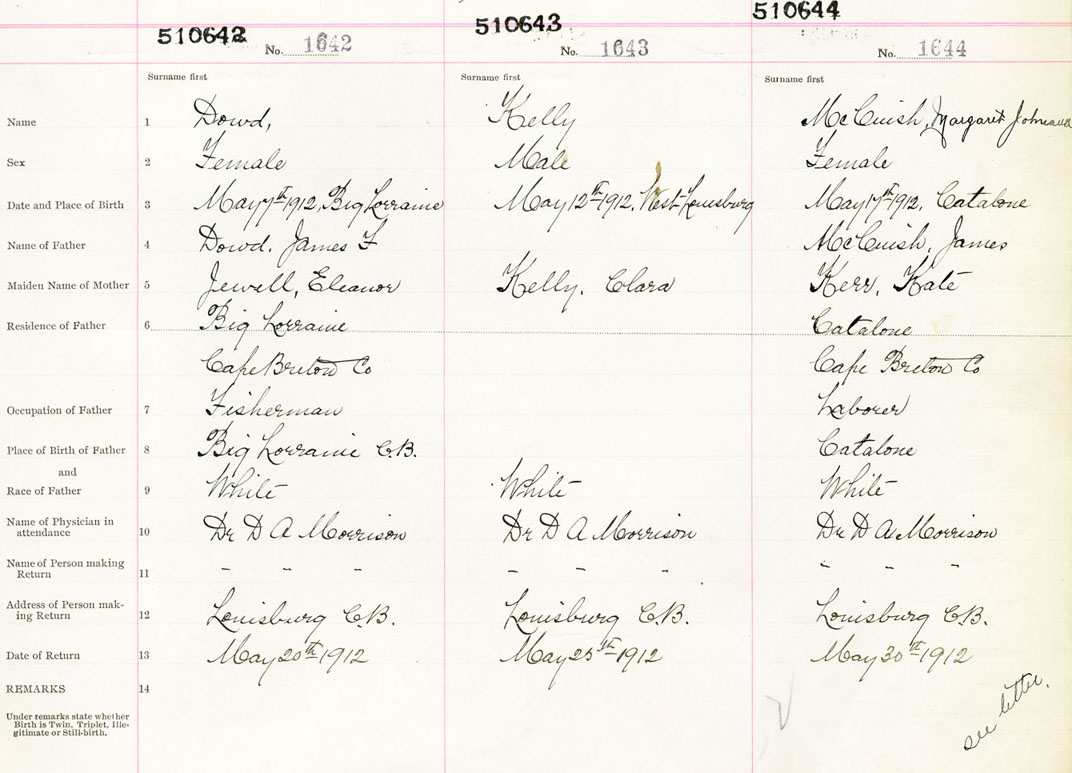 510642 510643 510644
No. 1642 No. 1643 No. 1644
Surname first Surname first Surname first
Name 1 Dowd, Kelly McCuish, Margaret
Sex 2 Female Male Female
Date and Place of Birth 3 May 7th 1912, Big Lorraine May 12th 1912, West Louisburg May 17th 1912, Catalone
Name of Father 4 Dowd, James F McCuish, James
Maiden Name of Mother 5 Jewell, Eleanor Kelly, Clara Kerr, Kate
Residence of Father 6 Big Lorraine Catalone
Cape Breton Co Cape Breton Co
Occupation of Father 7 Fisherman Laborer
Place of Birth of Father 8 Big Lorraine C.B. Catalone
and
Race of Father 9 White White White
Name of Physician in
attendance 10 Dr D A Morrison Dr D A Morrison Dr D A Morrison
Name of Person making
Return 11 - - - - - - - - -
Address of Person mak-
ing Return 12 Louisburg C.B. Louisburg C.B. Louisburg C.B.
Date of Return 13 May 20th 1912 May 25th 1912 May 30th 1912
REMARKS 14
Under remarks state whether
Birth is Twin, Triplet, Ille-
gitimate or Still-birth.
see letter.